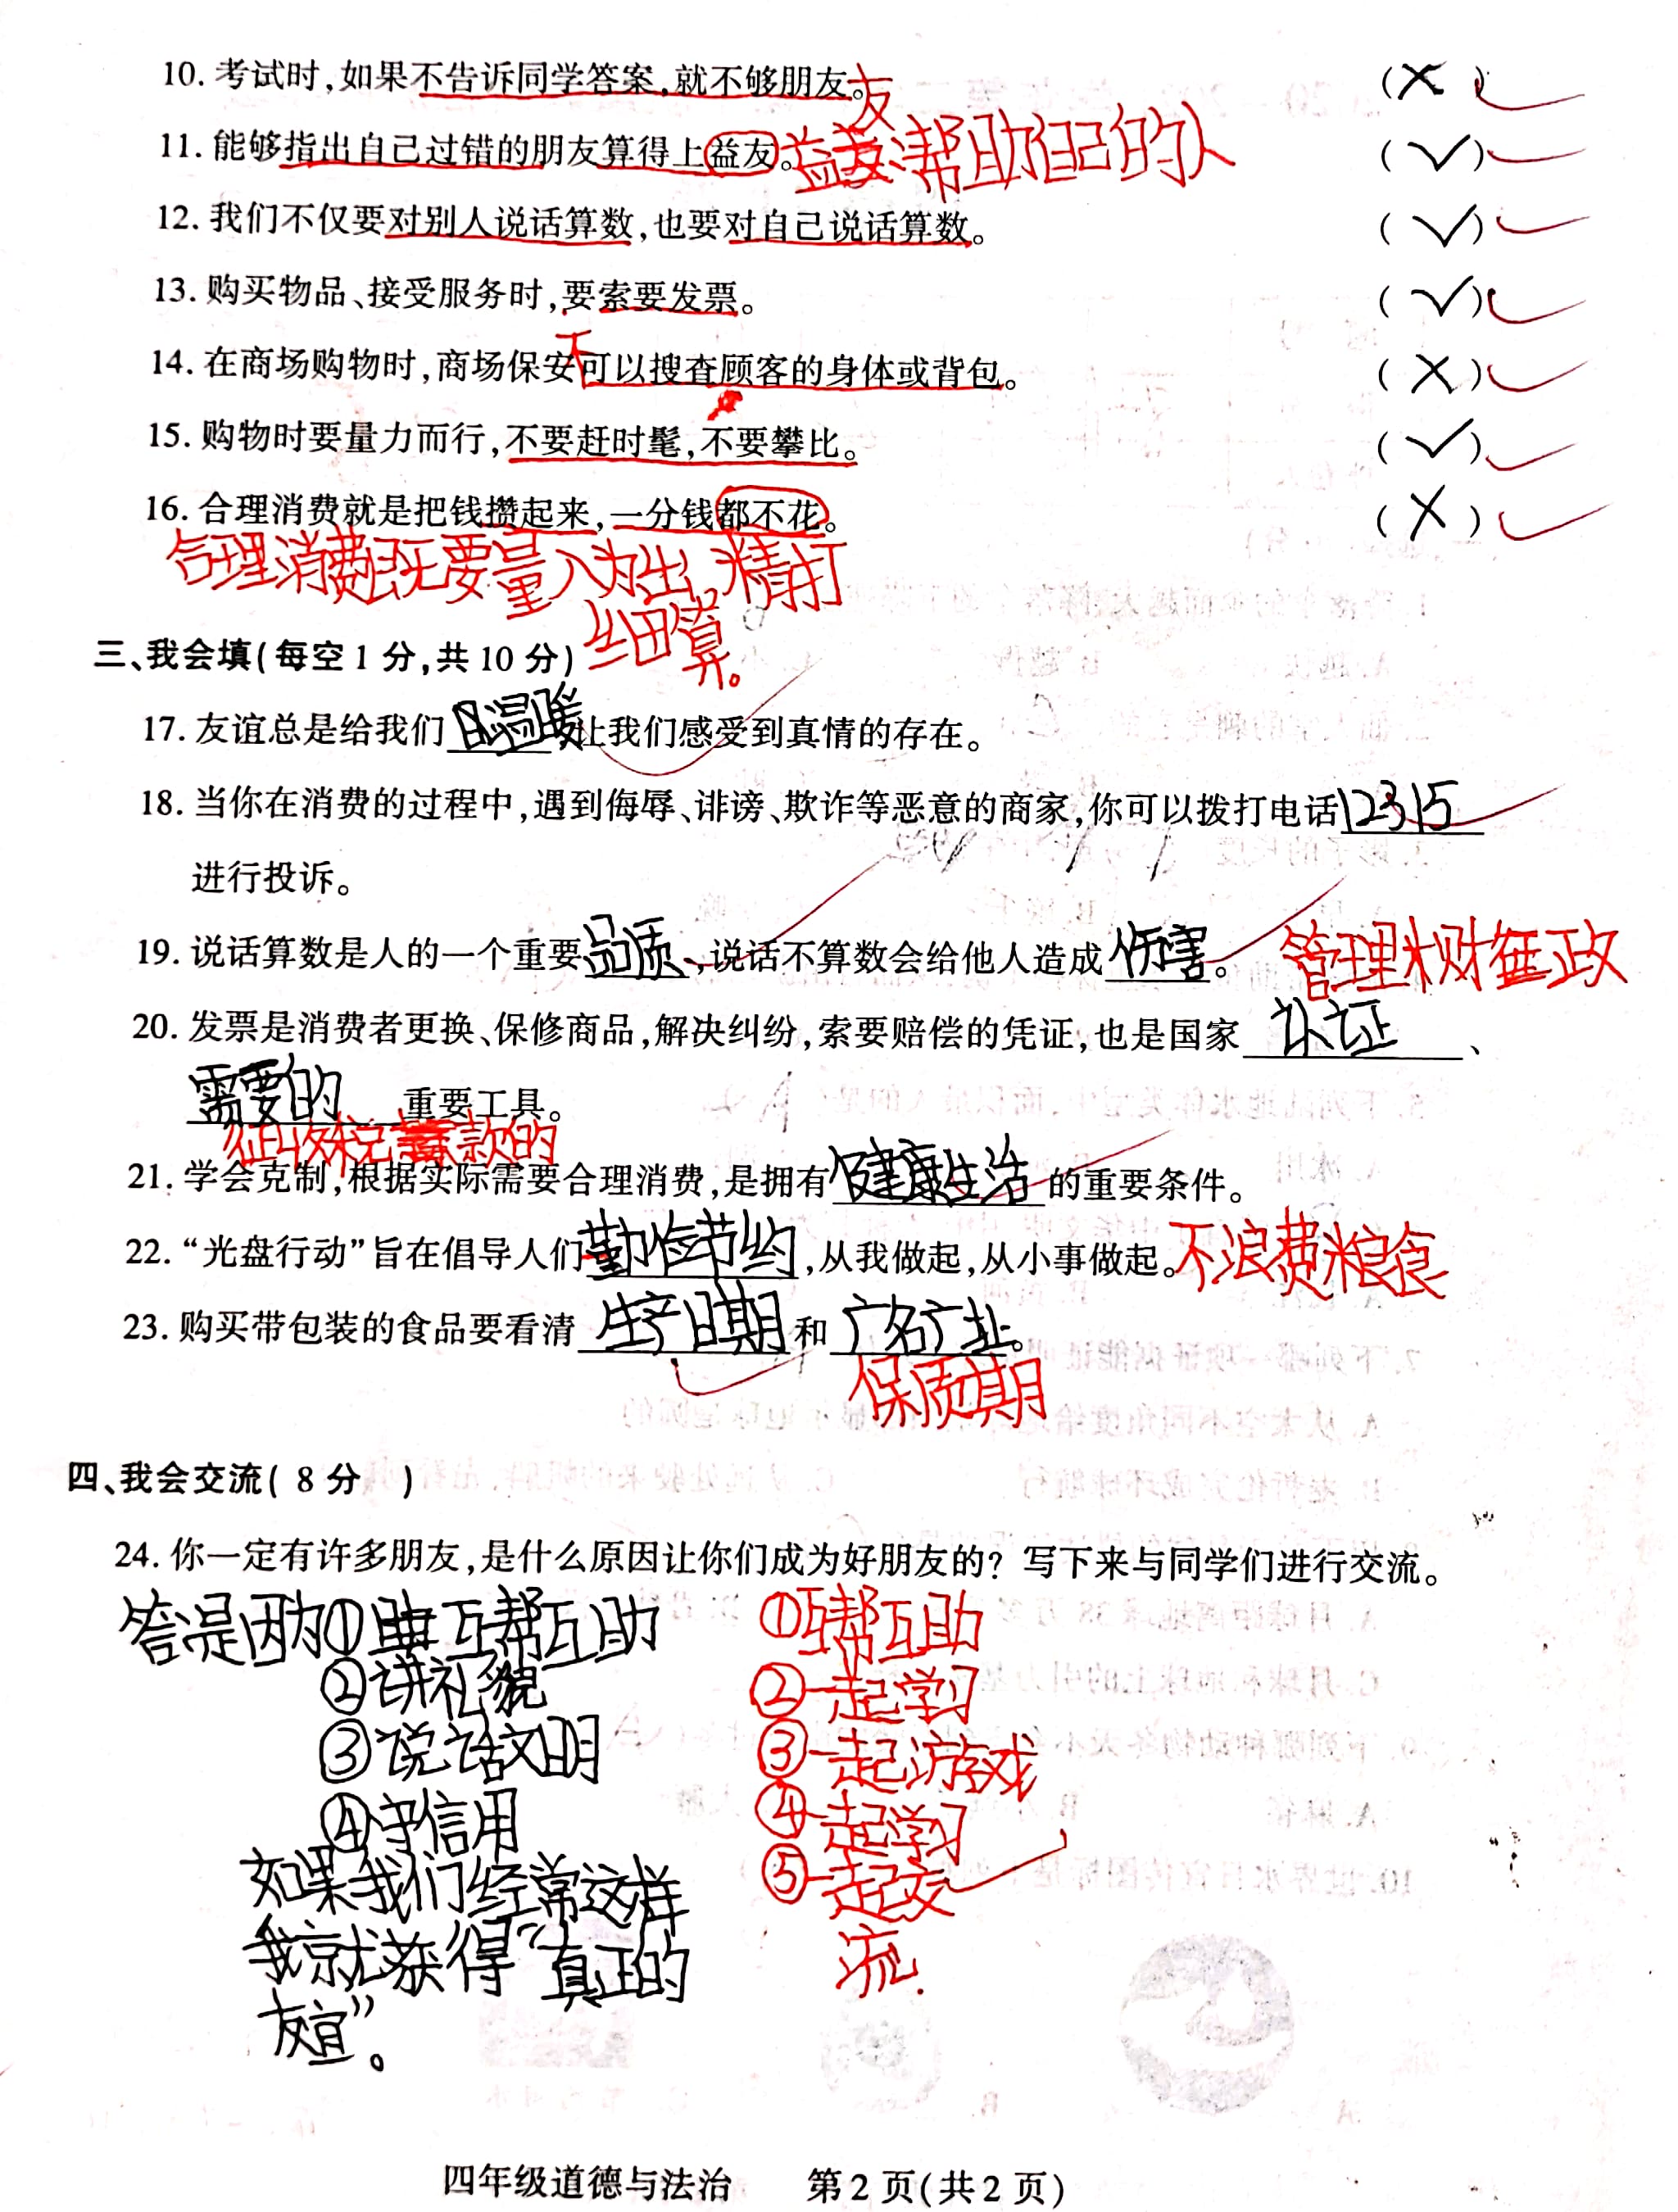 10. 考试时,如果不告诉同学答案,就不够朋友。 (×)
友
11. 能够指出自己过错的朋友算得上益友。 (✓)
益友:帮助自己的人
12. 我们不仅要对别人说话算数,也要对自己说话算数。 (✓)
13. 购买物品、接受服务时,要索要发票。 (✓)
不
14. 在商场购物时,商场保安可以搜查顾客的身体或背包。 (×)
15. 购物时要量力而行,不要赶时髦,不要攀比。 (✓)
16. 合理消费就是把钱攒起来,一分钱都不花。 (×)
合理消费既要量入为出,精打
细算。
三、我会填(每空1分,共10分)
17. 友谊总是给我们温暖,让我们感受到真情的存在。
18. 当你在消费的过程中,遇到侮辱、诽谤、欺诈等恶意的商家,你可以拨打电话12315
进行投诉。
19. 说话算数是人的一个重要品质,说话不算数会给他人造成伤害。
管理财政
20. 发票是消费者更换、保修商品,解决纠纷,索要赔偿的凭证,也是国家认证、
需要的重要工具。
征收税款的
21. 学会克制,根据实际需要合理消费,是拥有健康生活的重要条件。
22. “光盘行动”旨在倡导人们勤俭节约,从我做起,从小事做起。不浪费粮食
23. 购买带包装的食品要看清生产日期和厂名厂址。
保质期
四、我会交流( 8分 )
24. 你一定有许多朋友,是什么原因让你们成为好朋友的? 写下来与同学们进行交流。
答:是因为①互帮互助
②讲礼貌
③说话文明
④守信用
如果我们经常这样
我就获得“真正的
友宜”。
①互帮互助
②一起学习
③一起游戏
④一起学习
⑤一起交
流.
四年级道德与法治 第2页(共2页)